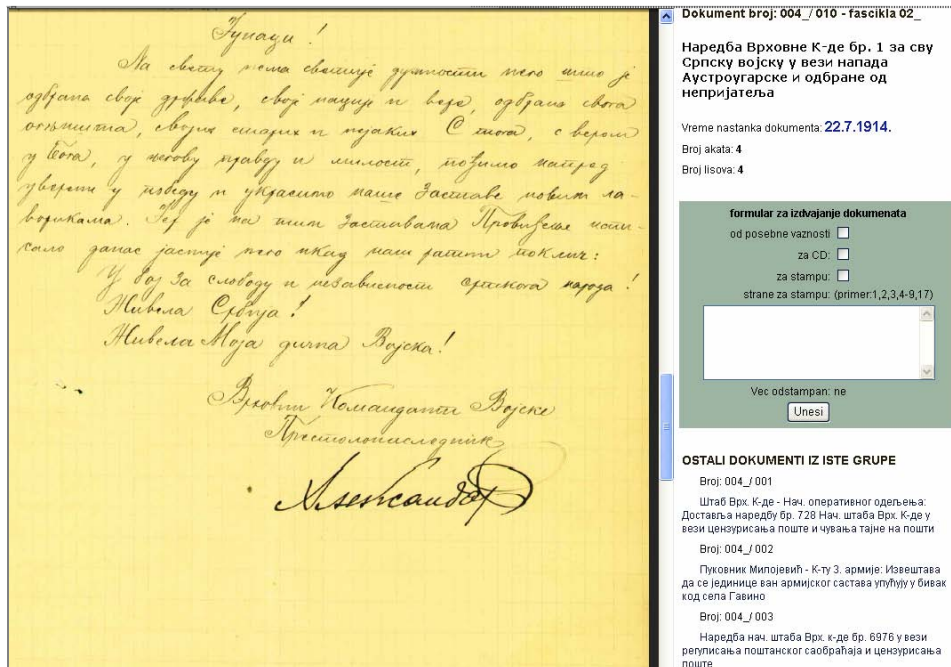 Јунаци!
На свету нема светије дужности него што је
одбрана своје државе, своје нације и вере, одбрана свога
огњишта, својих старих и нејаких С тога, с вером
у Бога, у његову правду и милост, пођимо напред
уверени у победу и украсимо наше Заставе новим ла-
ворикама. Јер је на тим Заставама Провиђење напи-
сало данас јасније него икад наш ратни поклич:
У бој за слободу и независност српскога народа!
Живела Србија!
Живела Моја дична Војска!
Врховни Командант Војске
Престолонаследник
Александар
Dokument broj: 004_/ 010 - fascikla 02_
Наредба Врховне К-де бр. 1 за сву
Српску војску у вези напада
Аустроугарске и одбране од
непријатеља
Vreme nastanka dokumenta: 22.7.1914.
Broj akata: 4
Broj lisova: 4
formular za izdvajanje dokumenata
od posebne vaznosti
za CD:
za stampu:
strane za stampu: (primer:1,2,3,4-9,17)
Vec odstampan: ne
Unesi
OSTALI DOKUMENTI IZ ISTE GRUPE
Broj: 004_/ 001
Штаб Врх. К-де - Нач. оперативног одељења:
Доставља наредбу бр. 728 Нач. штаба Врх. К-де у
вези цензурисања поште и чувања тајне на пошти
Broj: 004_/ 002
Пуковник Милојевић - К-ту 3. армије: Извештава
да се јединице ван армијског састава упућују у бивак
код села Гавино
Broj: 004_/ 003
Наредба нач. штаба Врх. к-де бр. 6976 у вези
регулисања поштанског саобраћаја и цензурисања
поште